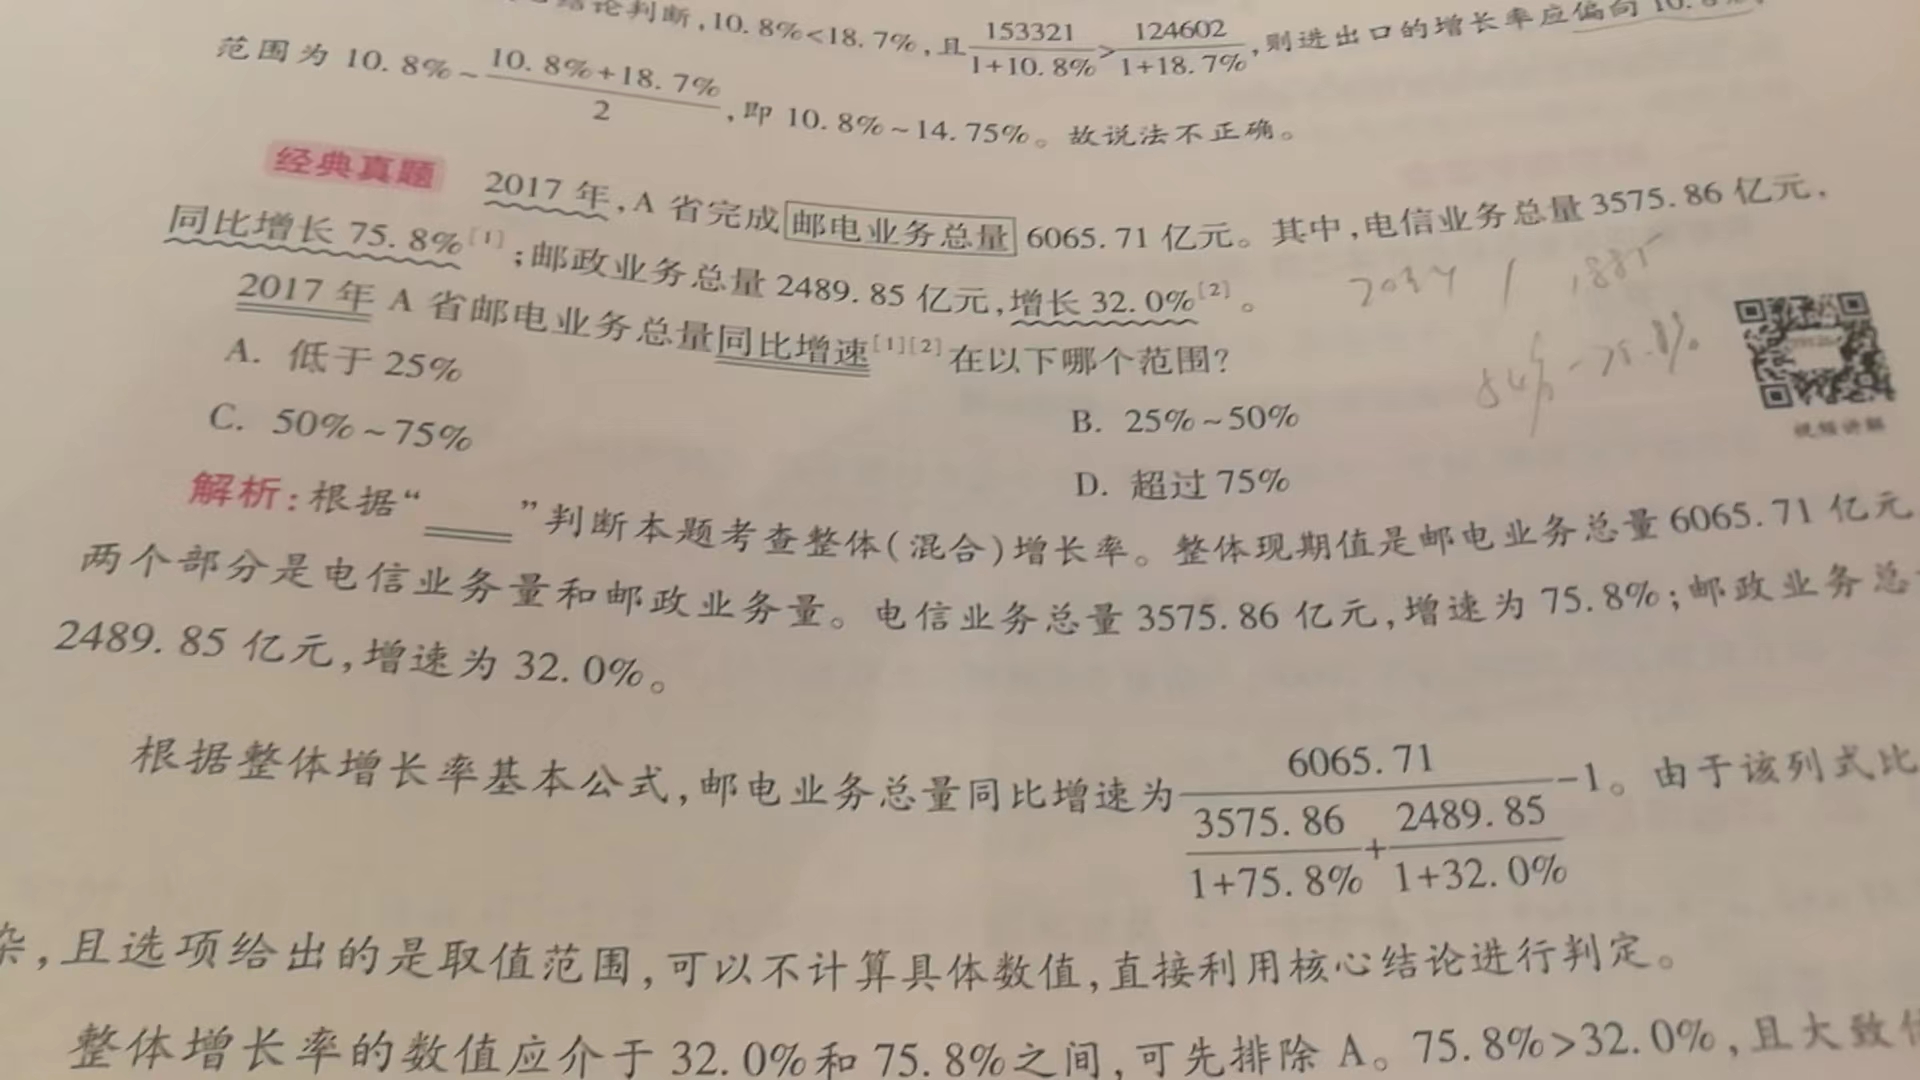 结论判断,10.8%<18.7%,且153321/1+10.8%>124602/1+18.7%,则进出口的增长率应偏向10.8%,
范围为10.8%~10.8%+18.7%/2,即10.8%~14.75%。故说法不正确。
经典真题 2017年,A省完成邮电业务总量6065.71亿元。其中,电信业务总量3575.86亿元,
同比增长75.8%[1];邮政业务总量2489.85亿元,增长32.0%[2]。
2017年A省邮电业务总量同比增速[1][2]在以下哪个范围?
A. 低于25%
B. 25%~50%
C. 50%~75%
D. 超过75%
84% - 75.8%
视频讲解
解析:根据“ ”判断本题考查整体(混合)增长率。整体现期值是邮电业务总量6065.71亿元
两个部分是电信业务量和邮政业务量。电信业务总量3575.86亿元,增速为75.8%;邮政业务总
2489.85亿元,增速为32.0%。
根据整体增长率基本公式,邮电业务总量同比增速为6065.71/(3575.86/1+75.8%+2489.85/1+32.0%)-1。由于该列式比
杂,且选项给出的是取值范围,可以不计算具体数值,直接利用核心结论进行判定。
整体增长率的数值应介于32.0%和75.8%之间,可先排除A。75.8%>32.0%,且大致